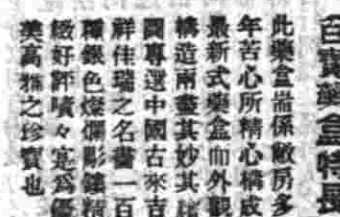 百寶藥盒特長
此藥盒耑係敝房多
年苦心所精心構成
最新式藥盒而外觀
構造兩盡其妙其
圖專選中國古來吉
祥佳瑞之名畫一百
種銀色燦爛彫鏤精
緻好評嘖々寔為優
美高雅之珍寶也